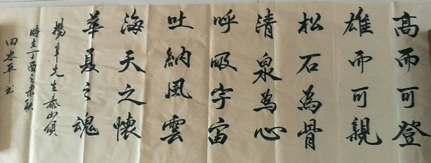 高而可登
雄而可親
松石為骨
清泉為心
呼吸宇宙
吐納風雲
海天之懷
華夏之魂
楊辛先生泰山頌
時在丁酉之